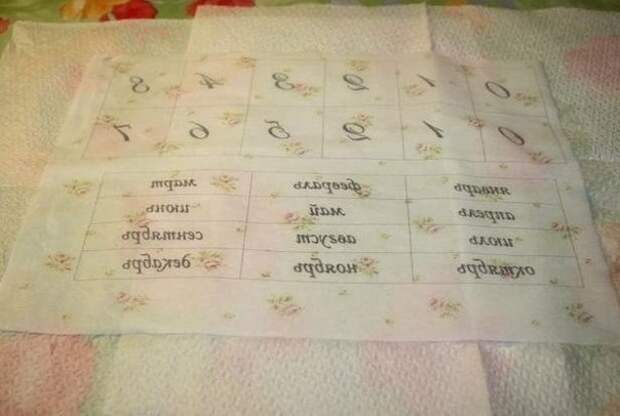 0 1 2 3 4 8
0 1 2 5 6 7
январь февраль март
апрель май июнь
июль август сентябрь
октябрь ноябрь декабрь